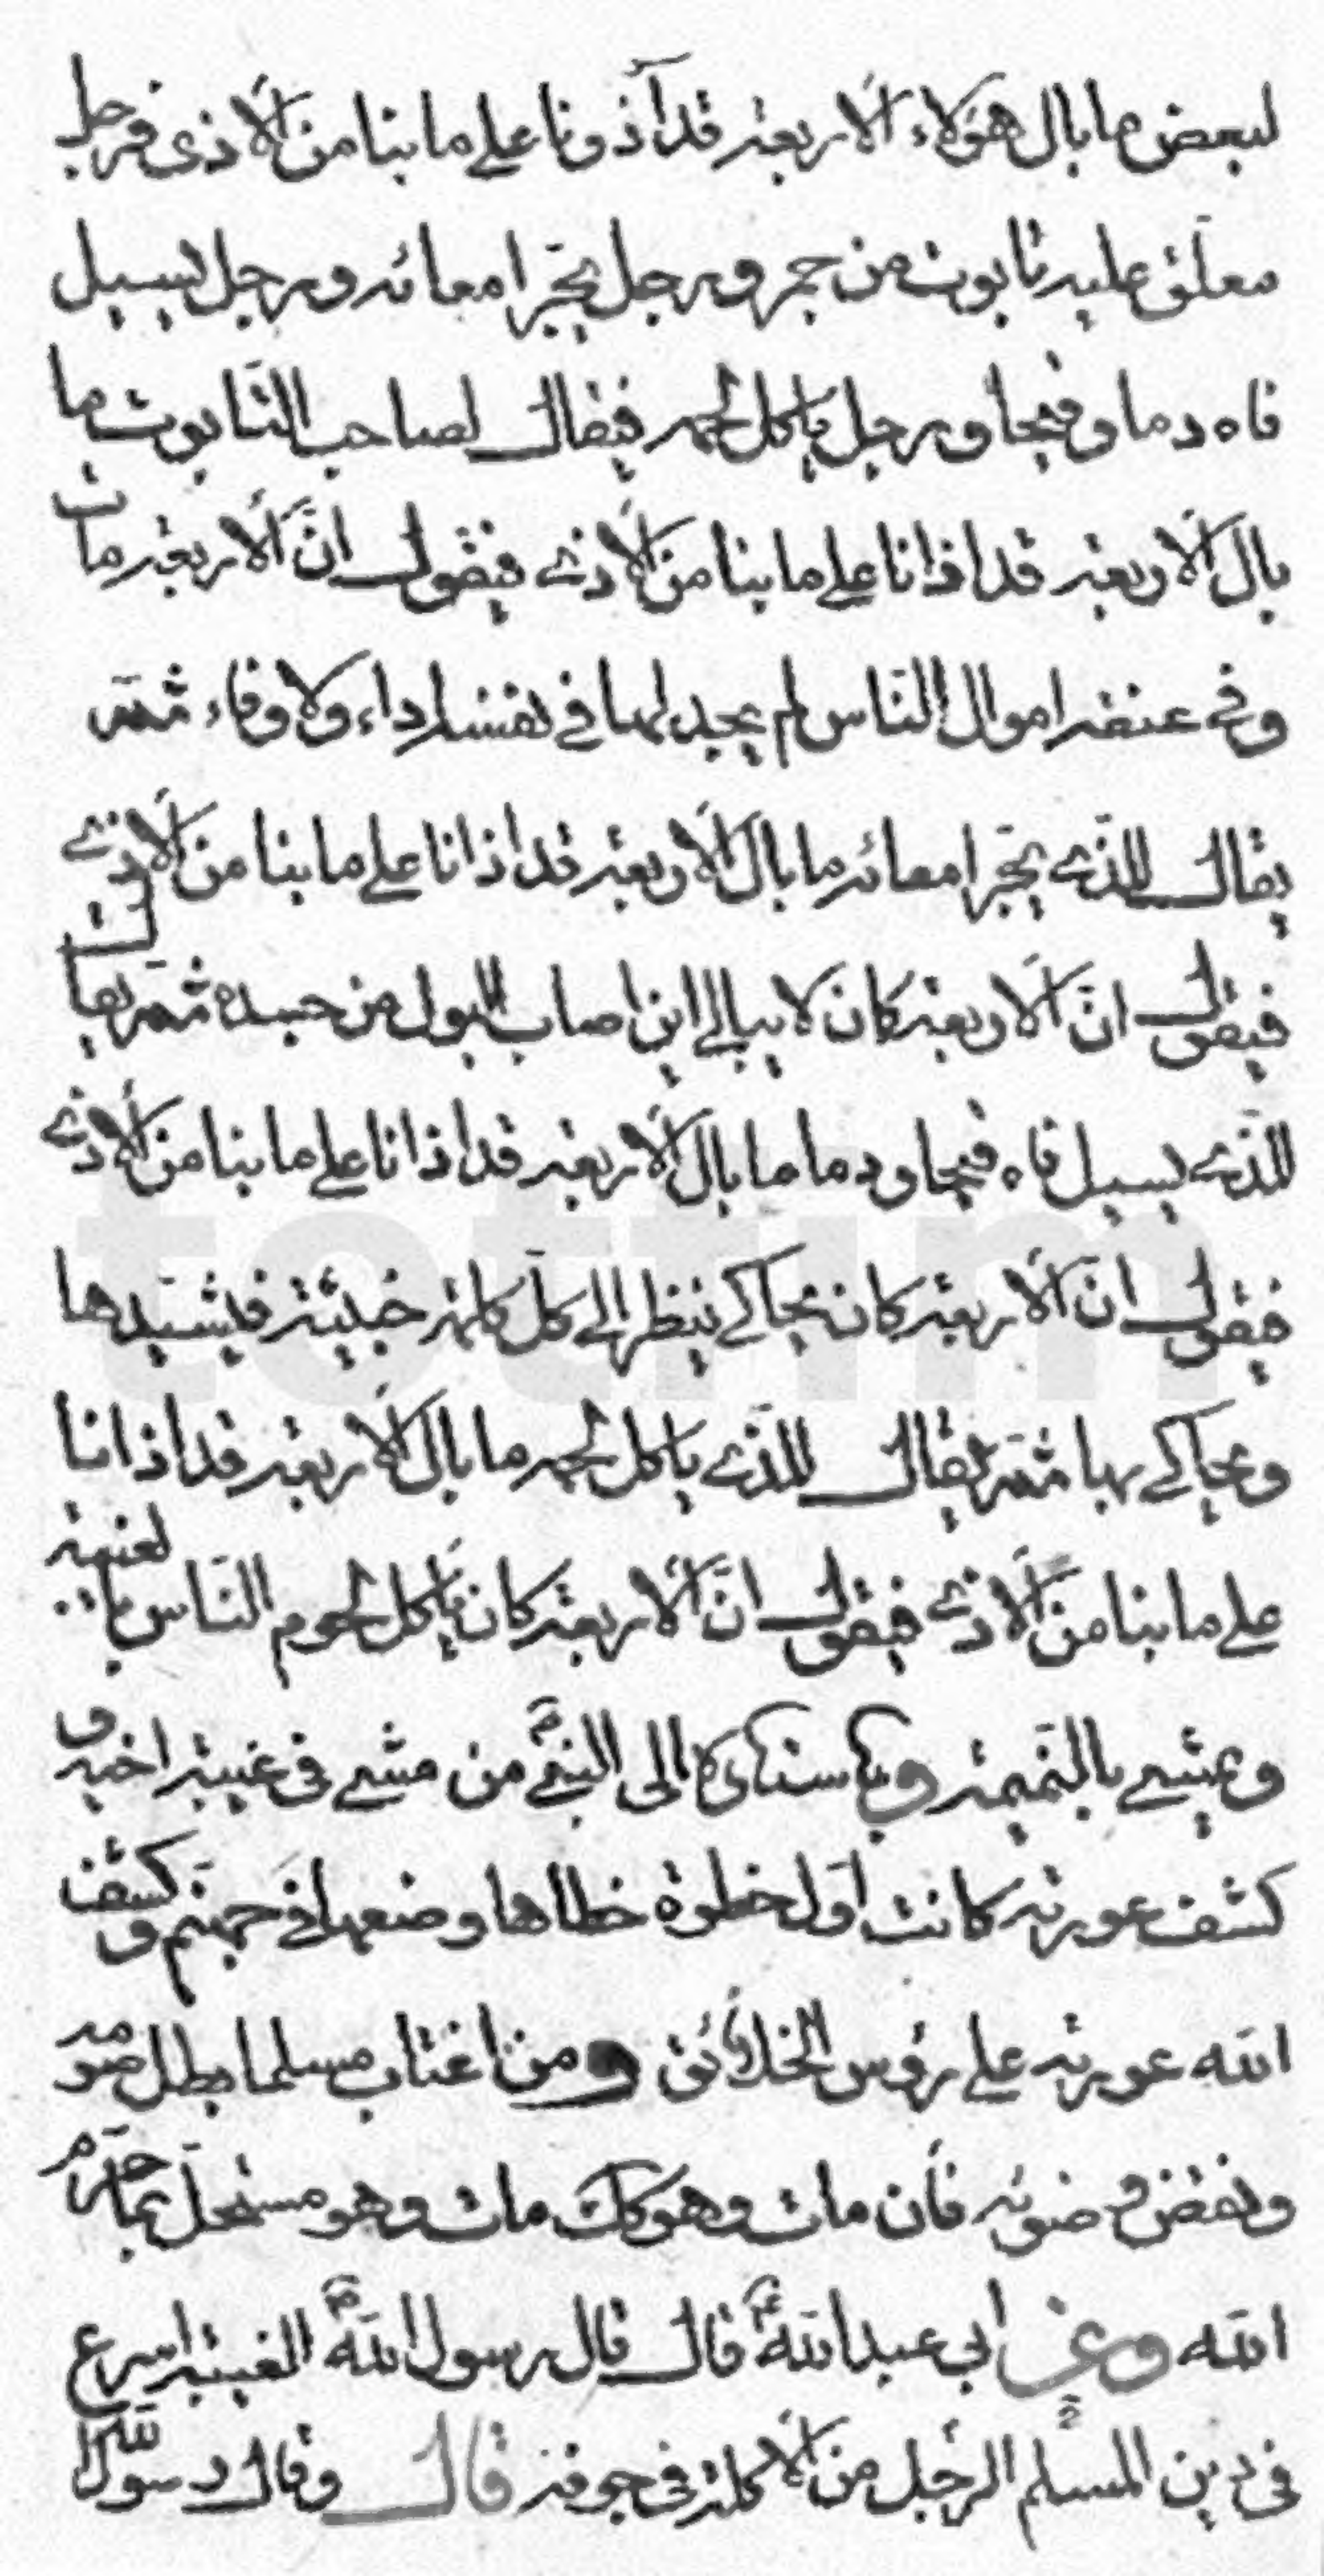 لبعض ما بال هؤلاء الاربعة قد آذونا على ما بنا من الاذى فرجل
معلق عليه تابوت من جمر ورجل يجر امعائه ورجل يسيل
فاه دما وقيحا ورجل ياكل لحمه فيقال لصاحب التابوت ما
بال الاربعة قد اذانا على ما بنا من الاذى فيقول انّ الاربعة مات
وفي عنقه اموال الناس لم يجد لها في نفسه اداء ولا وفاء ثمّ
يقال للذى يجر امعائه ما بال الاربعة قد اذانا على ما بنا من الاذى
فيقول انّ الاربعة كان لا يبالي اين اصاب البول من جسده ثمّ يقال
للذى يسيل فاه قيحا ودما ما بال الاربعة قد اذانا على ما بنا من الاذى
فيقول انّ الاربعة كان يحاكي ينظر الى كل كلمة خبيثة فيشيدها
ويحاكي بها ثمّ يقال للذى ياكل لحمه ما بال الاربعة قد اذانا
على ما بنا من الاذى فيقول انّ الاربعة كان ياكل لحوم الناس بالغيبة
ويمشي بالنميمة وباسناده الى النبي ص من مشى في غيبة اخيه و
كشف عورته كانت اول خطوة خطاها وضعها في جهنم وكشف
الله عورته على رؤس الخلائق ومن اغتاب مسلما بطل صومه
ونقض وضوئه فان مات وهو كك مات وهو مستحل بما حرم
الله وعن ابي عبد الله ع قال قال رسول الله ص الغيبة اسرع
في دين المسلم الرجل من الاكلة في جوفه قال وقال رسول الله